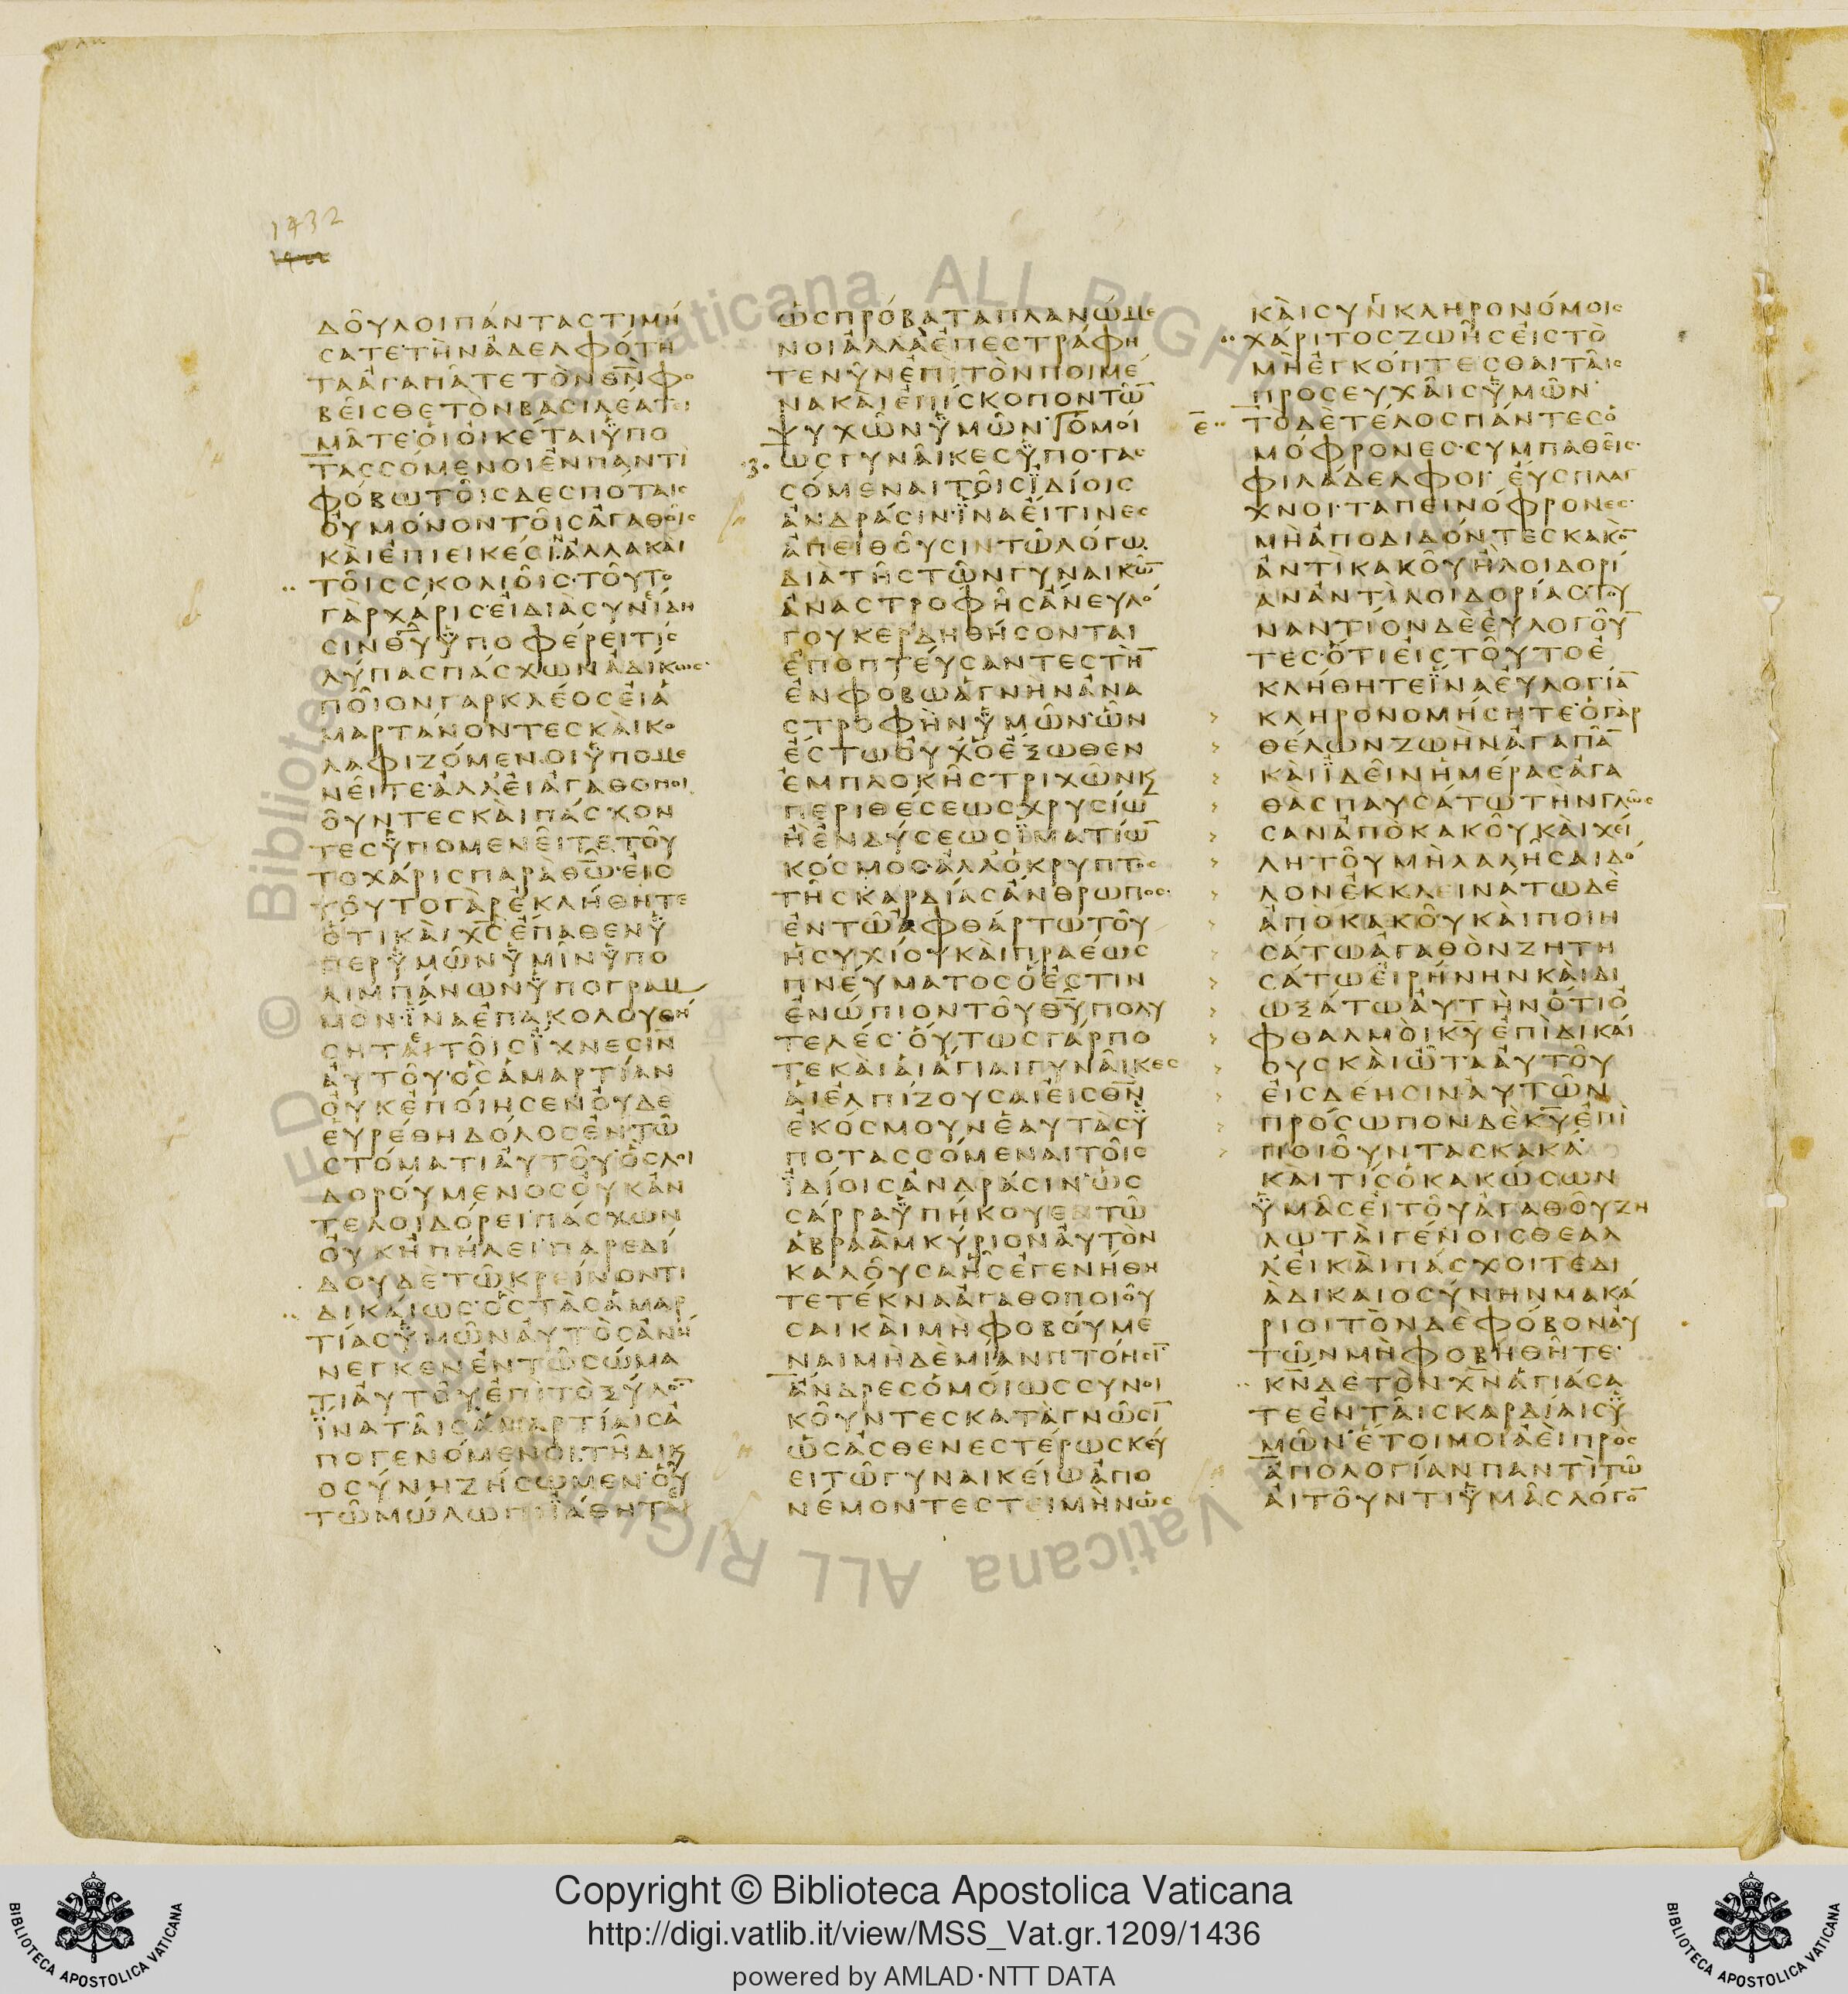 1432
ΔΟΥΛΟΙΠΑΝΤΑΣΤΙΜΗ
ΣΑΤΕΤΗΝΑΔΕΛΦΟΤΗ
ΤΑΑΓΑΠΑΤΕΤΟΝΘΝΦΟ
ΒΕΙΣΘΕΤΟΝΒΑΣΙΛΕΑΤΕΙ
ΜΑΤΕΟΙΟΙΚΕΤΑΙΫΠΟ
ΤΑΣΣΟΜΕΝΟΙΕΝΠΑΝΤΙ
ΦΟΒΩΤΟΙΣΔΕΣΠΟΤΑΙΣ
ΟΥΜΟΝΟΝΤΟΙΣΑΓΑΘΟΙΣ
ΚΑΙΕΠΙΕΙΚΕΣΙΝΑΛΛΑΚΑΙ
ΤΟΙΣΣΚΟΛΙΟΙΣΤΟΥΤΟ
ΓΑΡΧΑΡΙΣΕΙΔΙΑΣΥΝΕΙΔΗ
ΣΙΝΘΥΫΠΟΦΕΡΕΙΤΙΣ
ΛΥΠΑΣΠΑΣΧΩΝΑΔΙΚΩΣ
ΠΟΙΟΝΓΑΡΚΛΕΟΣΕΙΑ
ΜΑΡΤΑΝΟΝΤΕΣΚΑΙΚΟ
ΛΑΦΙΖΟΜΕΝΟΙΫΠΟΜΕ
ΝΕΙΤΕΑΛΛΕΙΑΓΑΘΟΠΟΙ
ΟΥΝΤΕΣΚΑΙΠΑΣΧΟΝ
ΤΕΣΫΠΟΜΕΝΕΙΤΕΤΟΥ
ΤΟΧΑΡΙΣΠΑΡΑΘΩΕΙΣ
ΤΟΥΤΟΓΑΡΕΚΛΗΘΗΤΕ
ΟΤΙΚΑΙΧΣΕΠΑΘΕΝΫ
ΠΕΡΫΜΩΝΫΜΙΝΫΠΟ
ΛΙΜΠΑΝΩΝΫΠΟΓΡΑΜ
ΜΟΝΪΝΑΕΠΑΚΟΛΟΥΘΗ
ΣΗΤΑΙΤΟΙΣΪΧΝΕΣΙΝ
ΑΥΤΟΥΟΣΑΜΑΡΤΙΑΝ
ΟΥΚΕΠΟΙΗΣΕΝΟΥΔΕ
ΕΥΡΕΘΗΔΟΛΟΣΕΝΤΩ
ΣΤΟΜΑΤΙΑΥΤΟΥΟΣΛΟΙ
ΔΟΡΟΥΜΕΝΟΣΟΥΚΑΝ
ΤΕΛΟΙΔΟΡΕΙΠΑΣΧΩΝ
ΟΥΚΗΠΗΛΕΙΠΑΡΕΔΙ
ΔΟΥΔΕΤΩΚΡΕΙΝΟΝΤΙ
ΔΙΚΑΙΩΣΟΣΤΑΣΑΜΑΡ
ΤΙΑΣΫΜΩΝΑΥΤΟΣΑΝΗ
ΝΕΓΚΕΝΕΝΤΩΣΩΜΑ
ΤΙΑΥΤΟΥΕΠΙΤΟΞΥΛΟ̄
ΪΝΑΤΑΙΣΑΜΑΡΤΙΑΙΣΑ
ΠΟΓΕΝΟΜΕΝΟΙΤΗΔΙΚΑΙ
ΟΣΥΝΗΖΗΣΩΜΕΝΟΥ
ΤΩΜΩΛΩΠΙΪΑΘΗΤΕ
ΩΣΠΡΟΒΑΤΑΠΛΑΝΩΜΕ
ΝΟΙΑΛΛΑΕΠΕΣΤΡΑΦΗ
ΤΕΝΥΝΕΠΙΤΟΝΠΟΙΜΕ
ΝΑΚΑΙΕΠΙΣΚΟΠΟΝΤΩ̄
ΨΥΧΩΝΫΜΩΝΟΜΟΙ
ΩΣΓΥΝΑΙΚΕΣΫΠΟΤΑΣ
ΣΟΜΕΝΑΙΤΟΙΣΪΔΙΟΙΣ
ΑΝΔΡΑΣΙΝΪΝΑΕΙΤΙΝΕΣ
ΑΠΕΙΘΟΥΣΙΝΤΩΛΟΓΩ
ΔΙΑΤΗΣΤΩΝΓΥΝΑΙΚΩ̄
ΑΝΑΣΤΡΟΦΗΣΑΝΕΥΛΟ
ΓΟΥΚΕΡΔΗΘΗΣΟΝΤΑΙ
ΕΠΟΠΤΕΥΣΑΝΤΕΣΤΗ̄
ΕΝΦΟΒΩΑΓΝΗΝΑΝΑ
ΣΤΡΟΦΗΝΫΜΩΝΩΝ
ΕΣΤΩΟΥΧΟΕΞΩΘΕΝ
ΕΜΠΛΟΚΗΣΤΡΙΧΩΝΚΑΙ
ΠΕΡΙΘΕΣΕΩΣΧΡΥΣΙΩ̄
ΗΕΝΔΥΣΕΩΣΪΜΑΤΙΩ̄
ΚΟΣΜΟΣΑΛΛΟΚΡΥΠΤΟΣ
ΤΗΣΚΑΡΔΙΑΣΑΝΘΡΩΠΟΣ
ΕΝΤΩΑΦΘΑΡΤΩΤΟΥ
ΗΣΥΧΙΟΥΚΑΙΠΡΑΕΩΣ
ΠΝΕΥΜΑΤΟΣΟΕΣΤΙΝ
ΕΝΩΠΙΟΝΤΟΥΘΥΠΟΛΥ
ΤΕΛΕΣΟΥΤΩΣΓΑΡΠΟ
ΤΕΚΑΙΑΙΑΓΙΑΙΓΥΝΑΙΚΕΣ
ΑΙΕΛΠΙΖΟΥΣΑΙΕΙΣΘΝ
ΕΚΟΣΜΟΥΝΕΑΥΤΑΣΫ
ΠΟΤΑΣΣΟΜΕΝΑΙΤΟΙΣ
ΪΔΙΟΙΣΑΝΔΡΑΣΙΝΩΣ
ΣΑΡΡΑΫΠΗΚΟΥΕΝΤΩ
ΑΒΡΑΑΜΚΥΡΙΟΝΑΥΤΟΝ
ΚΑΛΟΥΣΑΗΣΕΓΕΝΗΘΗ
ΤΕΤΕΚΝΑΑΓΑΘΟΠΟΙΟΥ
ΣΑΙΚΑΙΜΗΦΟΒΟΥΜΕ
ΝΑΙΜΗΔΕΜΙΑΝΠΤΟΗΣῙ
ΑΝΔΡΕΣΟΜΟΙΩΣΣΥΝΟΙ
ΚΟΥΝΤΕΣΚΑΤΑΓΝΩΣῙ
ΩΣΑΣΘΕΝΕΣΤΕΡΩΣΚΕΥ
ΕΙΤΩΓΥΝΑΙΚΕΙΩΑΠΟ
ΝΕΜΟΝΤΕΣΤΕΙΜΗΝΩΣ
ΚΑΙΣΥΝΚΛΗΡΟΝΟΜΟΙΣ
ΧΑΡΙΤΟΣΖΩΗΣΕΙΣΤΟ
ΜΗΕΓΚΟΠΤΕΣΘΑΙΤΑΙΣ
ΠΡΟΣΕΥΧΑΙΣΫΜΩΝ
ΤΟΔΕΤΕΛΟΣΠΑΝΤΕΣΟ
ΜΟΦΡΟΝΕΣΣΥΜΠΑΘΕΙΣ
ΦΙΛΑΔΕΛΦΟΙΕΥΣΠΛΑΓ
ΧΝΟΙΤΑΠΕΙΝΟΦΡΟΝΕΣ
ΜΗΑΠΟΔΙΔΟΝΤΕΣΚΑΚΟ̄
ΑΝΤΙΚΑΚΟΥΗΛΟΙΔΟΡΙ
ΑΝΑΝΤΙΛΟΙΔΟΡΙΑΣΤΟΥ
ΝΑΝΤΙΟΝΔΕΕΥΛΟΓΟῩ
ΤΕΣΟΤΙΕΙΣΤΟΥΤΟΕ
ΚΛΗΘΗΤΕΪΝΑΕΥΛΟΓΙᾹ
ΚΛΗΡΟΝΟΜΗΣΗΤΕΟΓΑΡ
ΘΕΛΩΝΖΩΗΝΑΓΑΠᾹ
ΚΑΙΪΔΕΙΝΗΜΕΡΑΣΑΓΑ
ΘΑΣΠΑΥΣΑΤΩΤΗΝΓΛΩΣ
ΣΑΝΑΠΟΚΑΚΟΥΚΑΙΧΕΙ
ΛΗΤΟΥΜΗΛΑΛΗΣΑΙΔΟ
ΛΟΝΕΚΚΛΕΙΝΑΤΩΔΕ
ΑΠΟΚΑΚΟΥΚΑΙΠΟΙΗ
ΣΑΤΩΑΓΑΘΟΝΖΗΤΗ
ΣΑΤΩΕΙΡΗΝΗΝΚΑΙΔΙ
ΩΞΑΤΩΑΥΤΗΝΟΤΙΟ
ΦΘΑΛΜΟΙΚΥΕΠΙΔΙΚΑΙ
ΟΥΣΚΑΙΩΤΑΑΥΤΟΥ
ΕΙΣΔΕΗΣΙΝΑΥΤΩΝ
ΠΡΟΣΩΠΟΝΔΕΚΥΕΠΙ
ΠΟΙΟΥΝΤΑΣΚΑΚΑ
ΚΑΙΤΙΣΟΚΑΚΩΣΩΝ
ΫΜΑΣΕΙΤΟΥΑΓΑΘΟΥΖΗ
ΛΩΤΑΙΓΕΝΟΙΣΘΕΑΛ
ΛΕΙΚΑΙΠΑΣΧΟΙΤΕΔΙ
ΑΔΙΚΑΙΟΣΥΝΗΝΜΑΚΑ
ΡΙΟΙΤΟΝΔΕΦΟΒΟΝΑΥ
ΤΩΝΜΗΦΟΒΗΘΗΤΕ
ΚΝΔΕΤΟΝΧΝΑΓΙΑΣΑ
ΤΕΕΝΤΑΙΣΚΑΡΔΙΑΙΣΫ
ΜΩΝΕΤΟΙΜΟΙΑΕΙΠΡΟΣ
ΑΠΟΛΟΓΙΑΝΠΑΝΤΙΤΩ
ΑΙΤΟΥΝΤΙΫΜΑΣΛΟΓΟ̄
Copyright © Biblioteca Apostolica Vaticana
http://digi.vatlib.it/view/MSS_Vat.gr.1209/1436
powered by AMLAD·NTT DATA
BIBLIOTECA APOSTOLICA VATICANA
BIBLIOTECA APOSTOLICA VATICANA